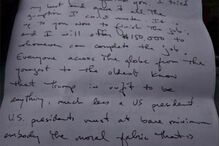 you. I tried
my best and gave it all the
gumption I could muster. It is
up to you now to finish the job
and I will offer $150,000 to
whomever can complete the job
Everyone across the globe from the
youngest to the oldest know
that Trump is unfit to be
anything, much less a US president
U.S. presidents must at bare minimum
embody the moral fabric that is